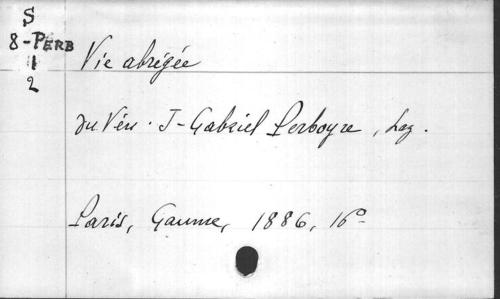 S
8-PERB
1
2
Vie abrégée
du Vén. J-Gabriel Perboyre, Laz.
Paris, Gaume, 1886, 16º